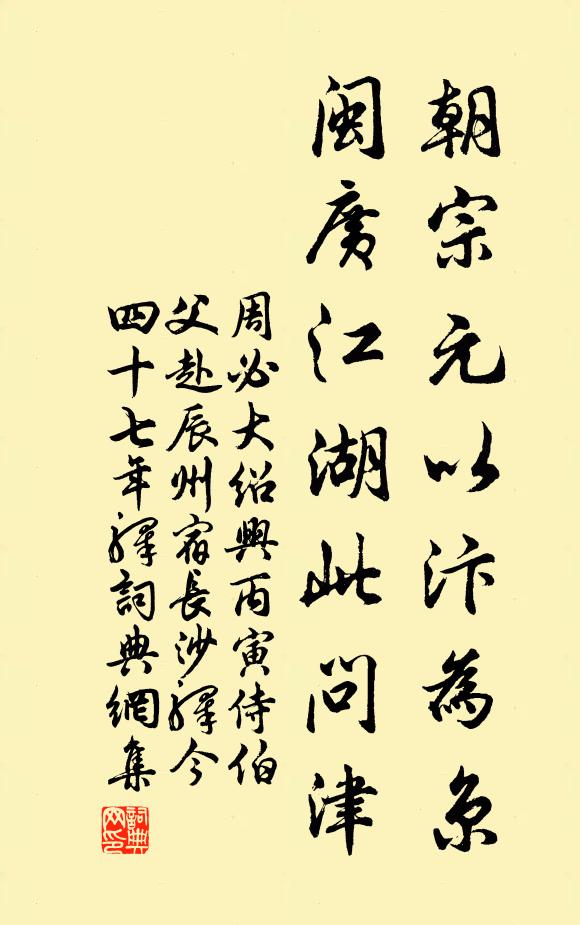 朝宗元以汴為京
閩廣江湖此問津
周必大紹興丙寅侍伯
父赴辰州宿長沙驛今
四十七年驛詞典網集
詞典
网印